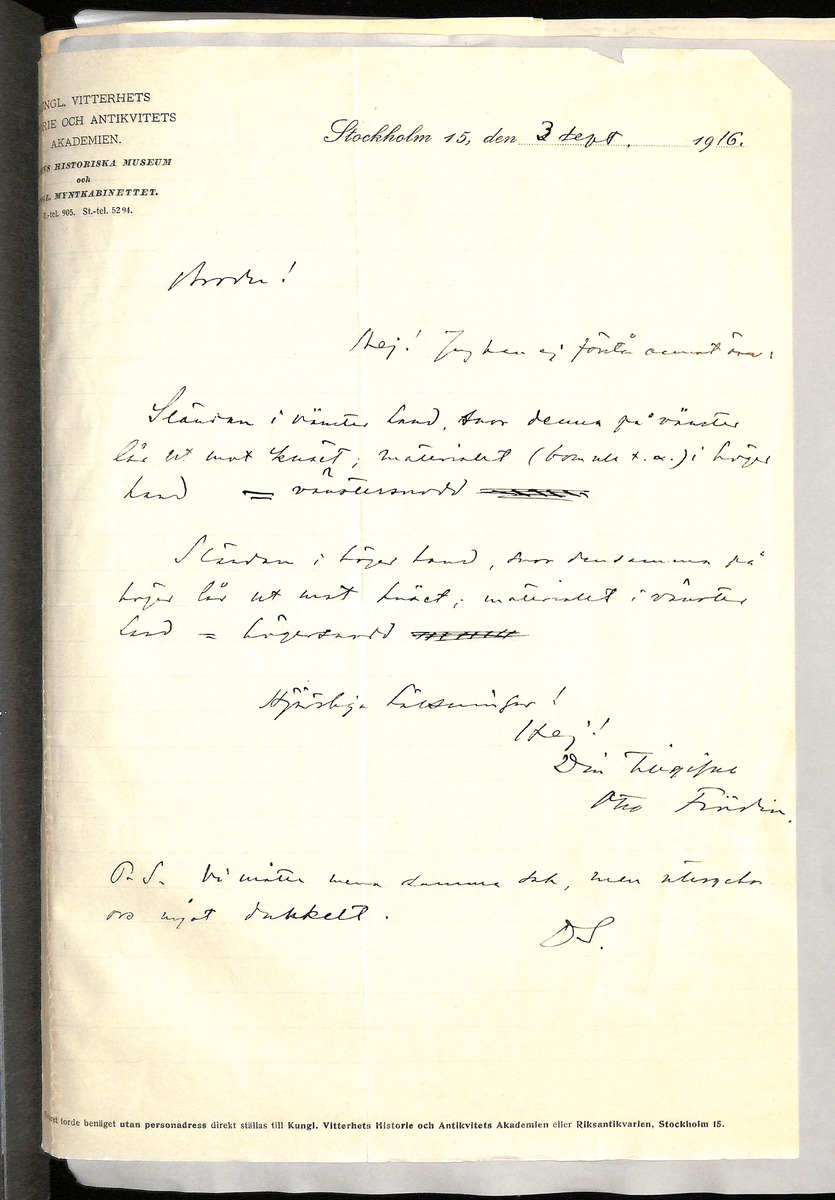 NGL. VITTERHETS
RIE OCH ANTIKVITETS
AKADEMIEN.
NS HISTORISKA MUSEUM
och
L. MYNTKABINETTET.
-tel. 905. St.-tel. 5294.
Stockholm 15, den 3 sept. 1916.
Broder!
Hej! Jag kan ej förstå annat än:
Sländan i vänster hand, snor denna på vänster
lår ut mot knäet; materialet (bomull t. ex.) i höger
hand = vänstersnodd
Sländan i höger hand, snor densamma på
höger lår ut mot knäet; materialet i vänster
hand = högersnodd
Hjärtliga hälsningar!
Hej!
Din tillgifne
Otto Frödin.
P.S. Vi måtte mena samma sak, men uttrycka
oss något dunkelt.
D.S.
torde benäget utan personadress direkt ställas till Kungl. Vitterhets Historie och Antikvitets Akademien eller Riksantikvarien, Stockholm 15.